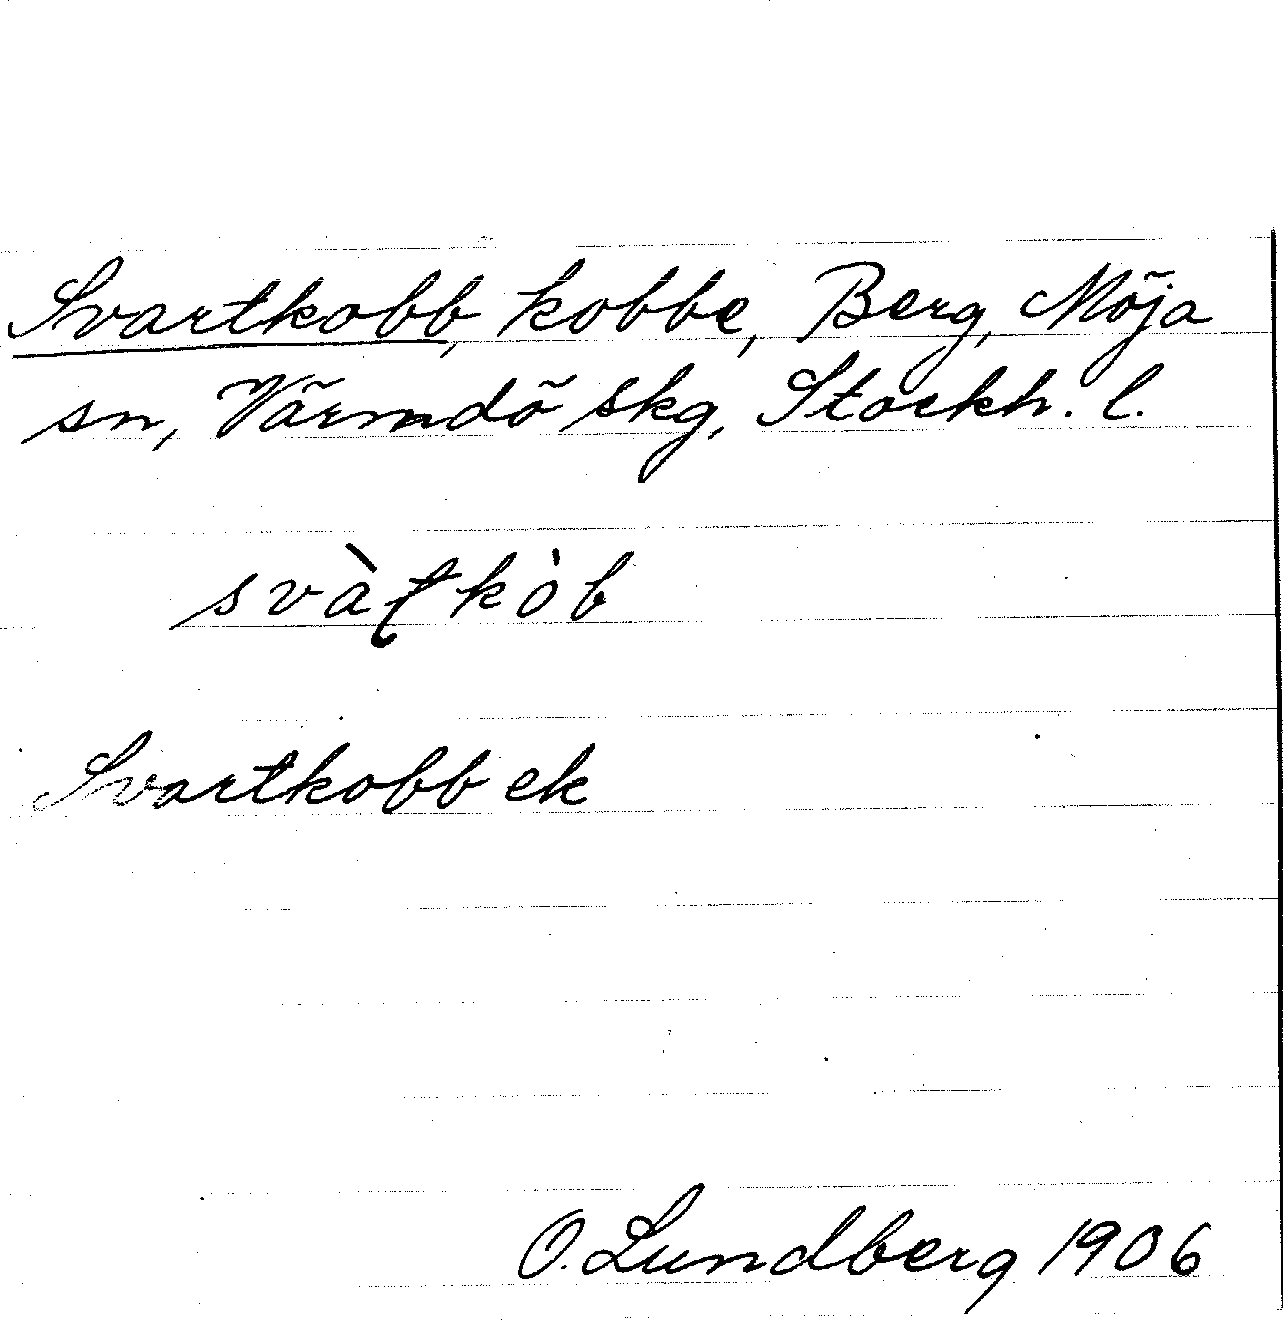 Svartkobb, kobbe, Berg, Möja
sn, Värmdö skg, Stockh. l.
svàʈkòb
Svartkobb ek
O. Lundberg 1906